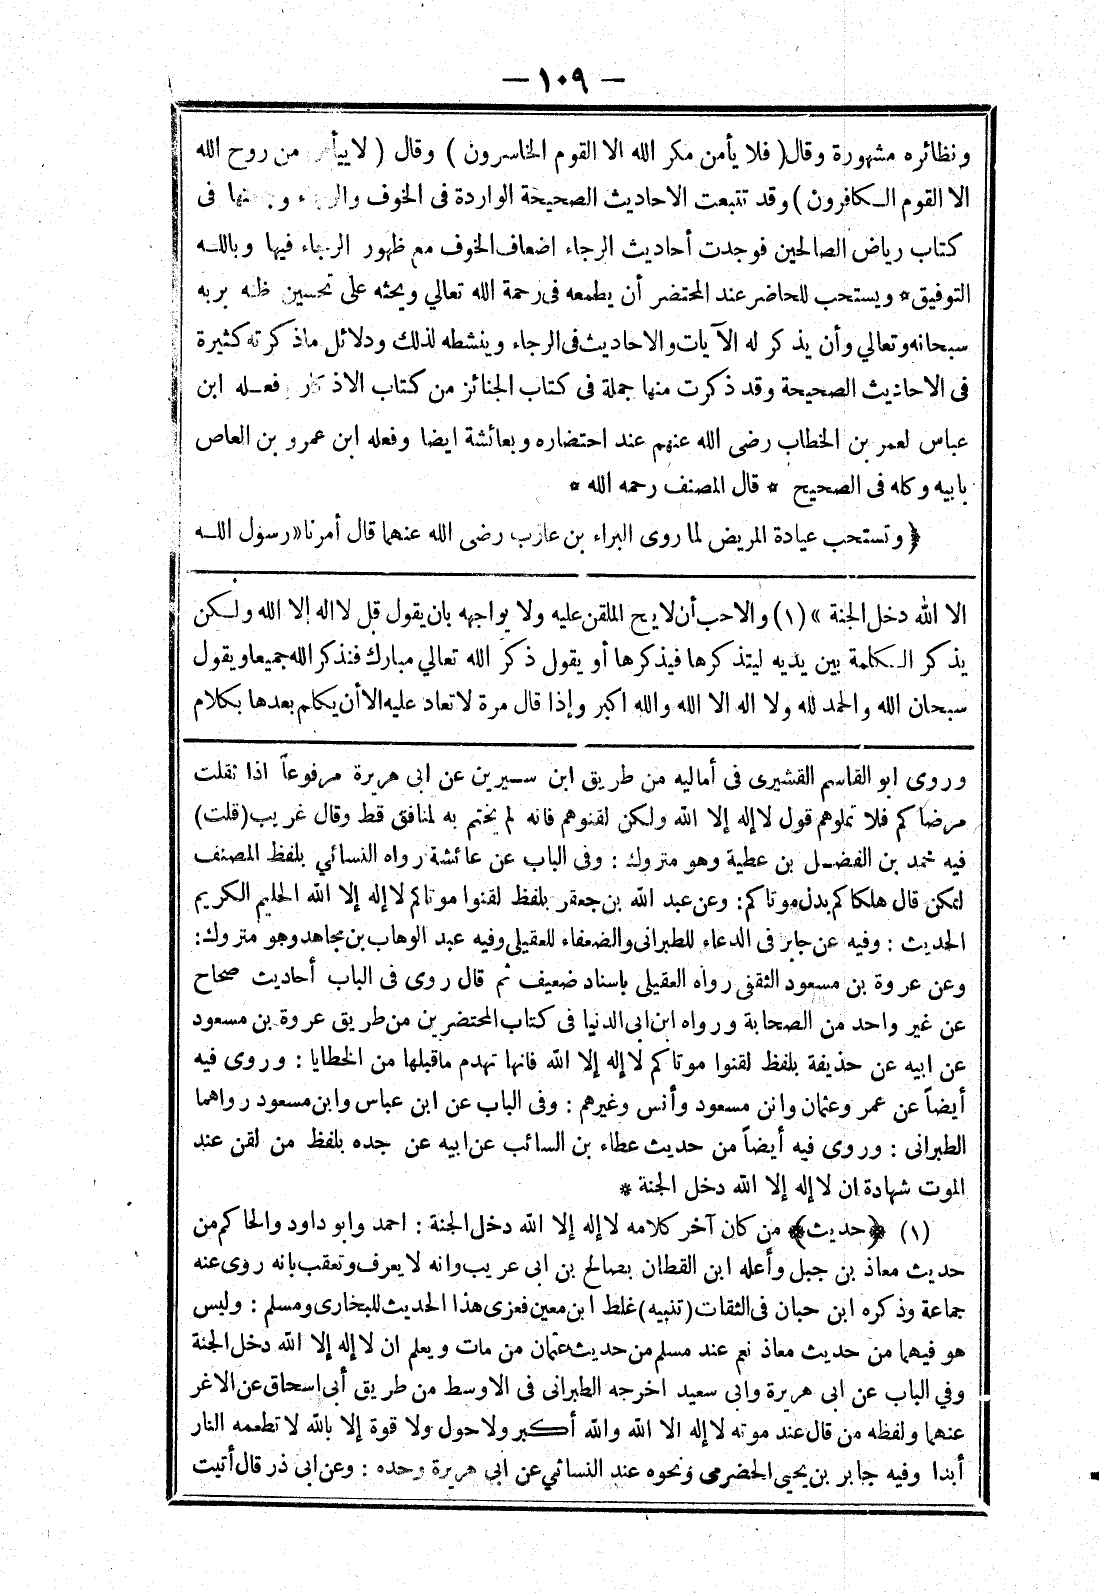 — ١٠٩ —
ونظائره مشهورة وقال( فلا يأمن مكر الله الا القوم الخاسرون ) وقال ( لا من روح الله
الا القوم الكافرون ) وقد تتبعت الاحاديث الصحيحة الواردة فى الخوف فى
كتاب رياض الصالحين فوجدت أحاديث الرجاء اضعاف الخوف مع ظهور الرجاء فيها وبالله
التوفيق * ويستحب للحاضر عند المحتضر أن يطمعه فى رحمة الله تعالي ويحثه على تحسين ظنه بربه
سبحانه وتعالي وأن يذكر له الآيات والاحاديث فى الرجاء وينشطه لذلك ودلائل ماذكرته كثيرة
فى الاحاديث الصحيحة وقد ذكرت منها جملة فى كتاب الجنائز من كتاب الاذكار وفعله ابن
عباس لعمر بن الخطاب رضى الله عنهم عند احتضاره وبعائشة ايضا وفعله ابن عمرو بن العاص
بابيه وكله فى الصحيح * قال المصنف رحمه الله *
﴿ وتستحب عيادة المريض لما روى البراء بن عازب رضى الله عنهما قال أمرنا «رسول الله
الا الله دخل الجنة » (١) والاحب أن لا يلح الملقن عليه ولا يواجهه بان يقول قل لا اله إلا الله ولكن
يذكر الكلمة بين يديه ليتذكرها فيذكرها أو يقول ذكر الله تعالي مبارك فنذكر الله جميعا ويقول
سبحان الله والحمد لله ولا اله الا الله والله اكبر وإذا قال مرة لا تعاد عليه الا أن يكلم بعدها بكلام
وروى ابو القاسم القشيرى فى أماليه من طريق ابن سيرين عن ابى هريرة مرفوعاً اذا ثقلت
مرضاكم فلا تملوهم قول لا إله إلا الله ولكن لقنوهم فانه لم يختم به لمنافق قط وقال غريب (قلت)
فيه محمد بن الفضل بن عطية وهو متروك : وفى الباب عن عائشة رواه النسائي بلفظ المصنف
لكن قال هلكاكم بدل موتاكم : وعن عبد الله بن جعفر بلفظ لقنوا موتاكم لا إله إلا الله الحليم الكريم
الحديث : وفيه عن جابر فى الدعاء للطبرانى والضعفاء للعقيلى وفيه عبد الوهاب بن مجاهد وهو متروك :
وعن عروة بن مسعود الثقفى رواه العقيلى باسناد ضعيف ثم قال روى فى الباب أحاديث صحاح
عن غير واحد من الصحابة ورواه ابن ابى الدنيا فى كتاب المحتضرين من طريق عروة بن مسعود
عن ابيه عن حذيفة بلفظ لقنوا موتاكم لا إله إلا الله فانها تهدم ماقبلها من الخطايا : وروى فيه
أيضاً عن عمر وعثمان وابن مسعود وأنس وغيرهم : وفى الباب عن ابن عباس وابن مسعود رواهما
الطبرانى : وروى فيه أيضاً من حديث عطاء بن السائب عن ابيه عن جده بلفظ من لقن عند
الموت شهادة ان لا إله إلا الله دخل الجنة *
(١) ﴿حديث﴾ من كان آخر كلامه لا إله إلا الله دخل الجنة : احمد وابو داود والحاكم من
حديث معاذ بن جبل وأعله ابن القطان بصالح بن ابى عريب وانه لا يعرف وتعقب بانه روى عنه
جماعة وذكره ابن حبان فى الثقات (تنبيه) غلط ابن معين فعزى هذا الحديث للبخارى ومسلم : وليس
هو فيهما من حديث معاذ نعم عند مسلم من حديث عثمان من مات ويعلم ان لا إله إلا الله دخل الجنة
وفي الباب عن ابى هريرة وابى سعيد اخرجه الطبرانى فى الاوسط من طريق أبى اسحاق عن الاغر
عنهما ولفظه من قال عند موته لا إله الا الله والله أكبر ولا حول ولا قوة إلا بالله لا تطعمه النار
أبدا وفيه جابر بن يحيى الحضرمى ونحوه عند النسائي عن ابي هريرة وحده : وعن ابى ذر قال أتيت